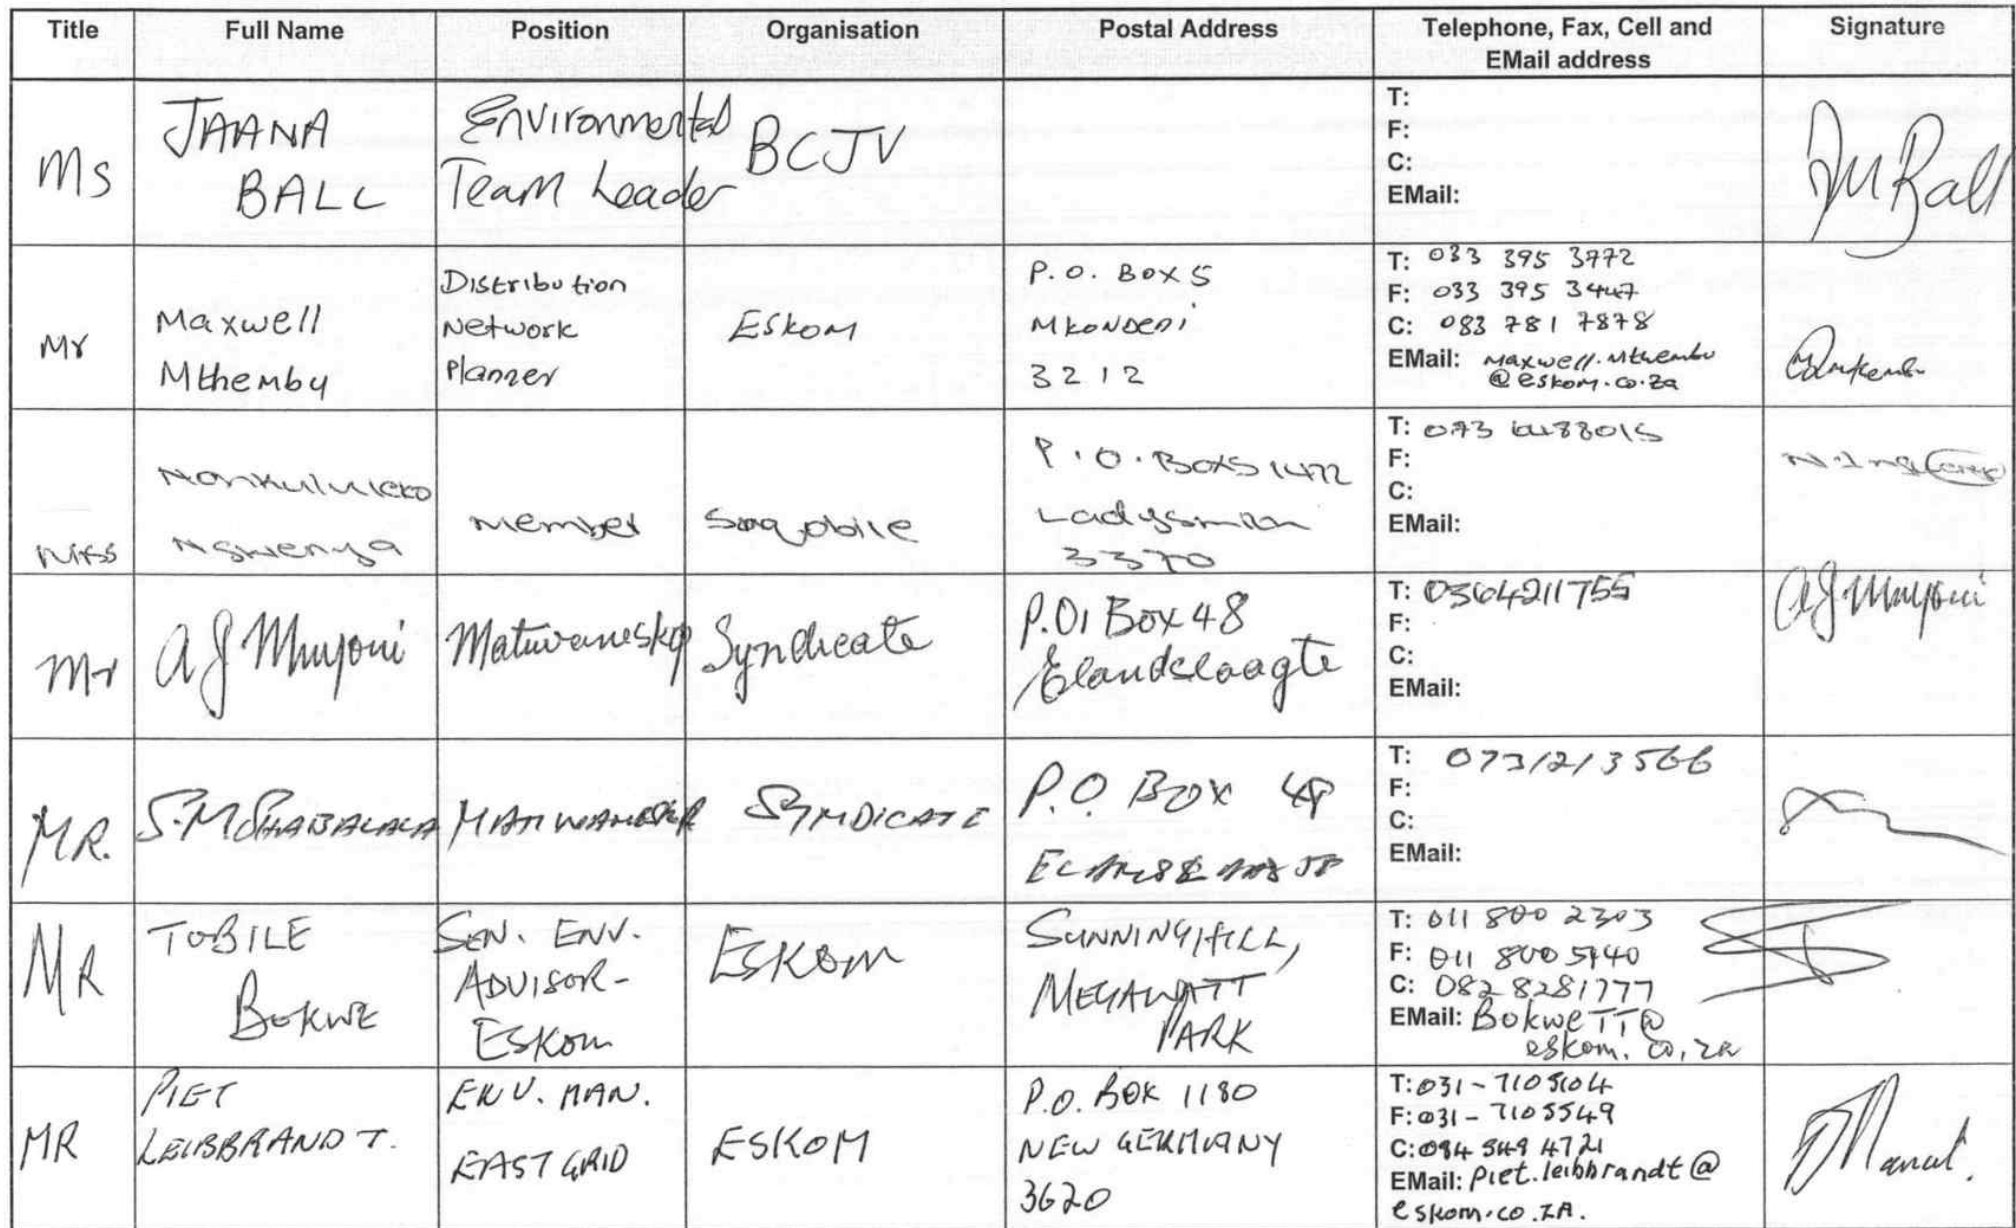 Title Full Name Position Organisation Postal Address Telephone, Fax, Cell and EMail address Signature
Ms JAANA BALL Environmental Team Leader BCJV
T:
F:
C:
EMail:
Mr Maxwell Mthembu Distribution Network Planner ESKOM P.O. BOX 5 MKONDENI 3212
T: 033 395 3772
F: 033 395 3447
C: 083 781 7878
EMail: maxwell.mthembu@eskom.co.za
Miss Nonkululeko Ngwenya Member P.O. Box 1472 Ladysmith 3370
T: 073
F:
C:
EMail:
Mr Syndicate P.O. Box 48 Elandslaagte
T: 0364211755
F:
C:
EMail:
MR. S.M SHABALALA SYNDICATE P.O BOX 48
T: 0731213566
F:
C:
EMail:
MR TOBILE BOKWE SEN. ENV. ADVISOR- ESKOM ESKOM SUNNINGHILL, MEGAWATT PARK
T: 011 800 2303
F: 011 800 5140
C: 082 8281777
EMail: BokweTT@eskom.co.za
MR PIET LEIBBRANDT. ENV. MAN. EAST GRID ESKOM P.O. BOX 1180 NEW GERMANY 3620
T: 031-7105104
F: 031-7105549
C: 084 549 4721
EMail: Piet.leibbrandt@eskom.co.ZA.